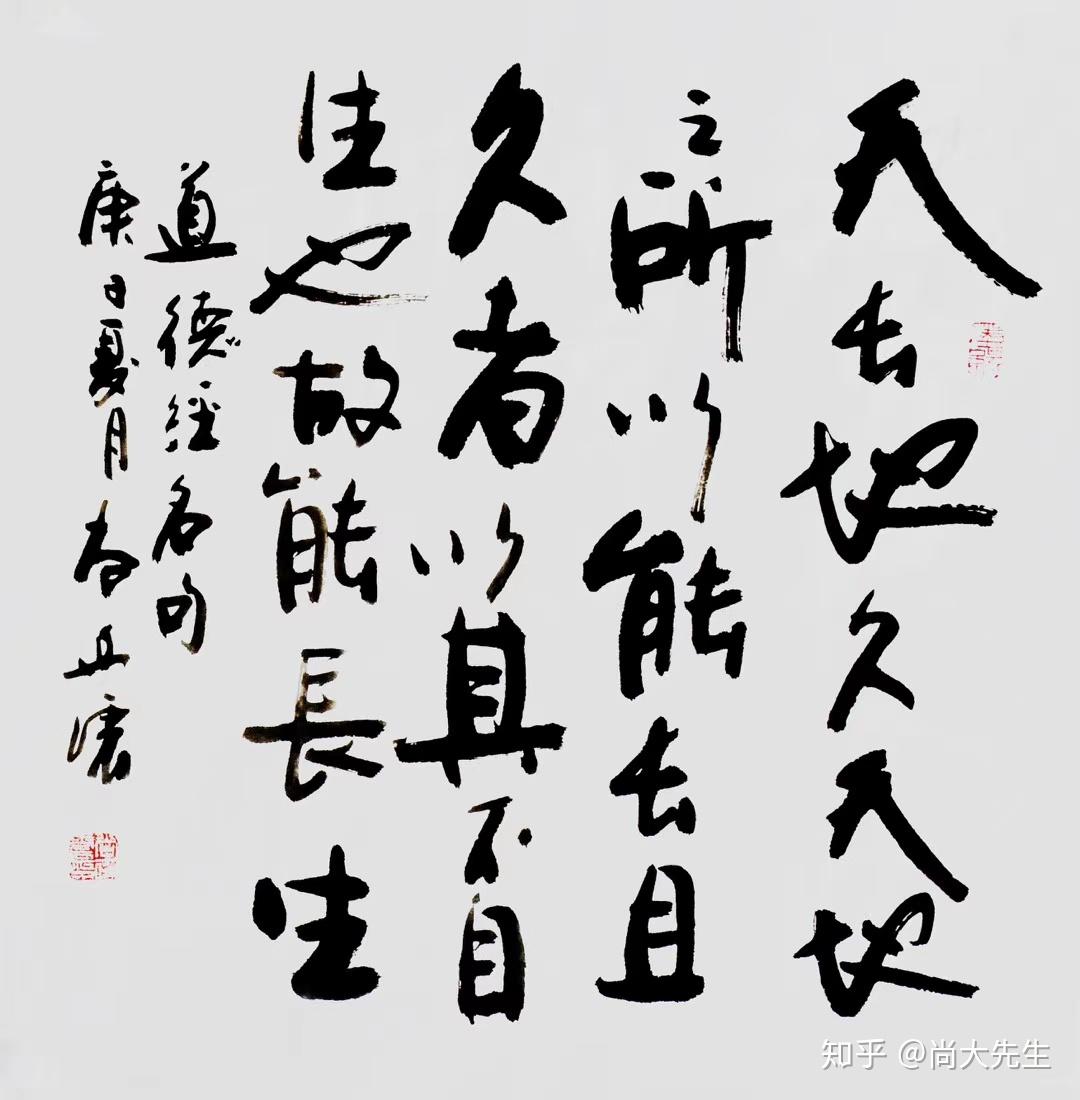 天长地久天地
之所以能长且
久者以其不自
生也故能長生
道德經名句
庚子夏月尚
知乎 @尚大先生